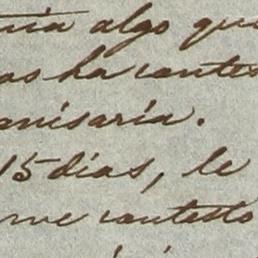 algo que
ha contes
misaría.
15 dias, le
me contestó